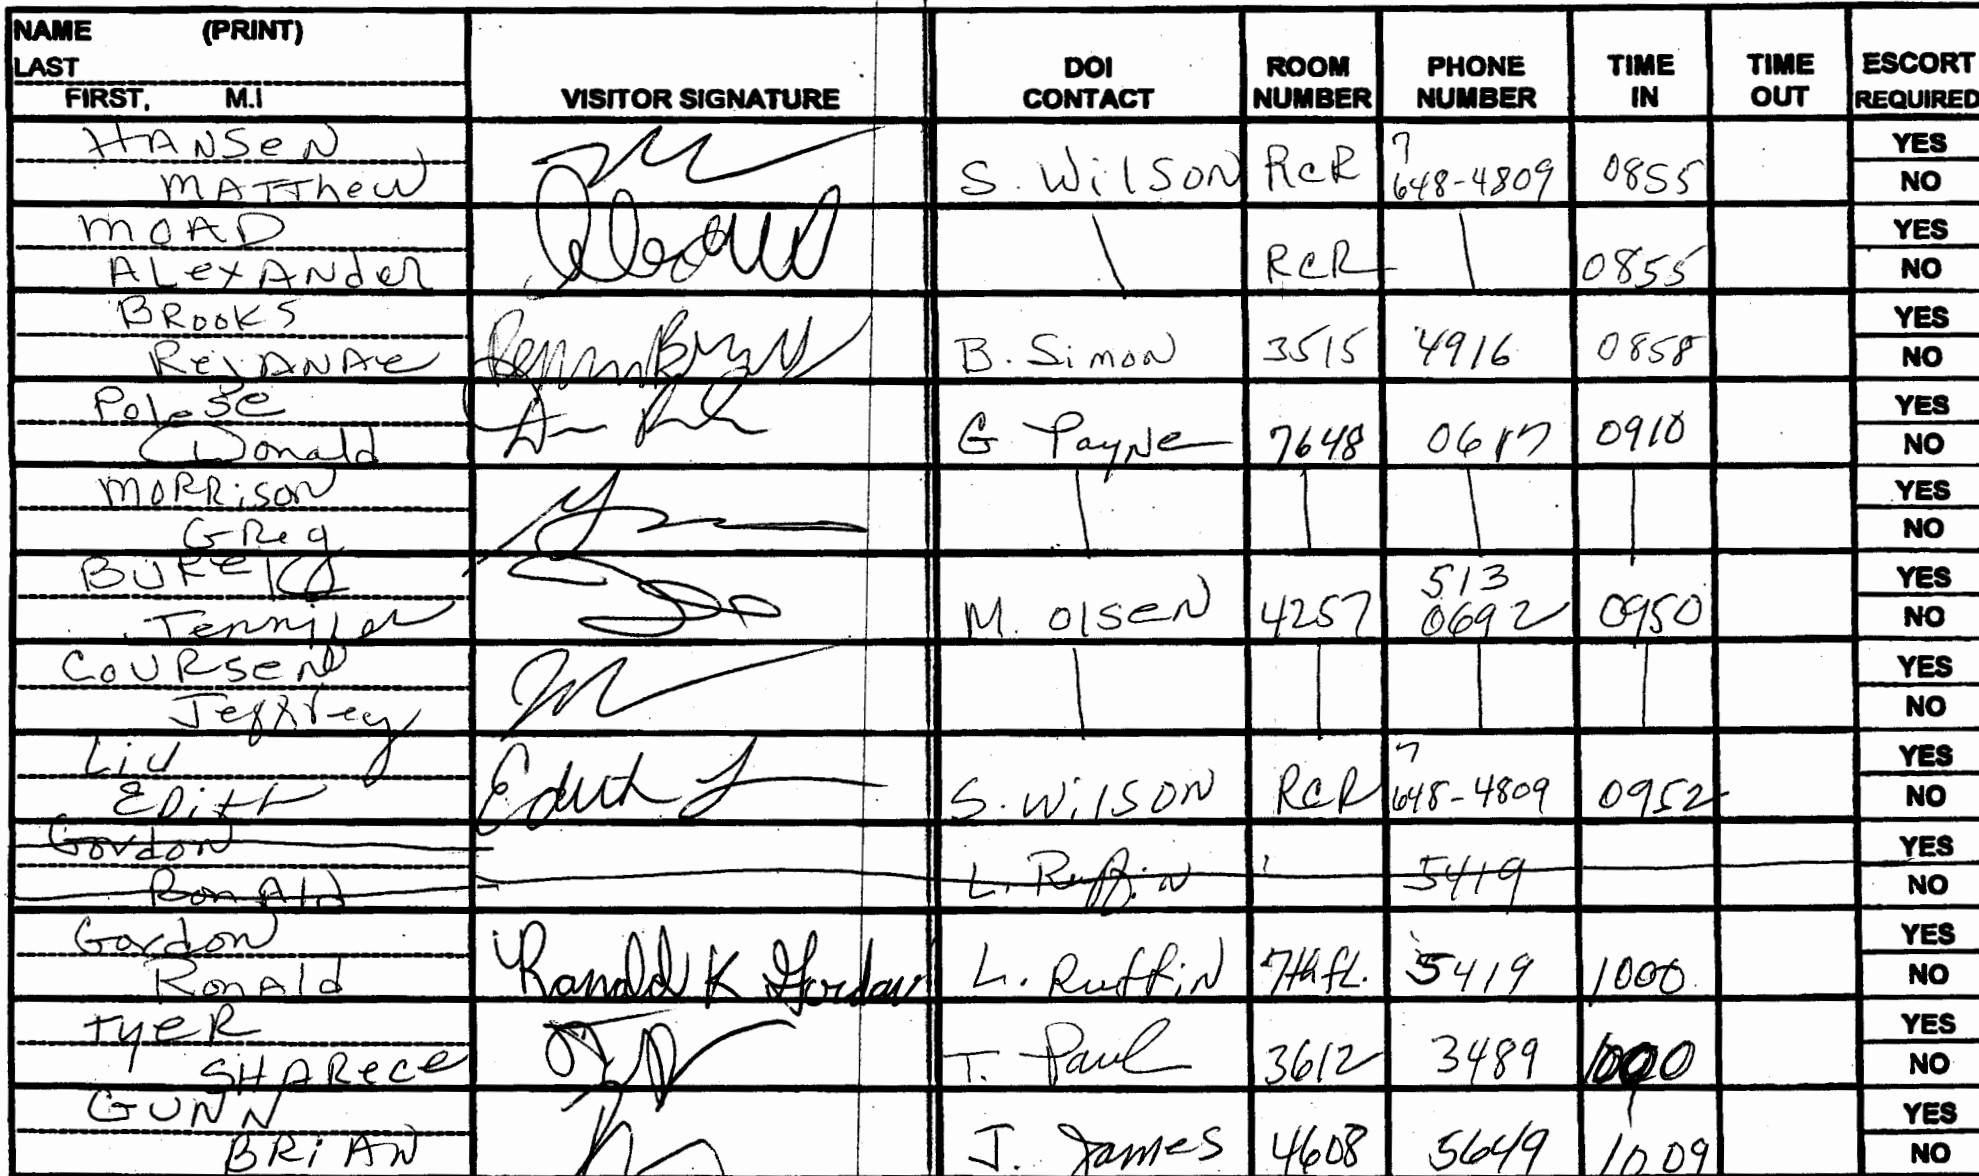 NAME (PRINT)
LAST
FIRST, M.I
VISITOR SIGNATURE
DOI CONTACT
ROOM NUMBER
PHONE NUMBER
TIME IN
TIME OUT
ESCORT REQUIRED
HANSeN
MATTheW S. WilSON RcR 7 648-4809 0855 YES NO
MOAD
ALexANdeR RcR 0855 YES NO
BRooKS
B. SimoN 3515 4916 0858 YES NO
Polese
Donald G Payne 7648 0617 0910 YES NO
MORRiSoN
GReg YES NO
Jennifer M. OlSeN 4257 513 0692 0950 YES NO
CoURSeN
Jeffrey YES NO
Liu
EDith Edith S. WilSON RcR 7 648-4809 0952 YES NO
Gordon
RonAld L. Ruffin 5419 YES NO
Gordon
RonAld Ronald K Gordon L. Ruffin 7th fl. 5419 1000 YES NO
TyeR
SHARece T. Paul 3612 3489 1000 YES NO
GUNN
BRiAN J. James 4608 5649 1009 YES NO